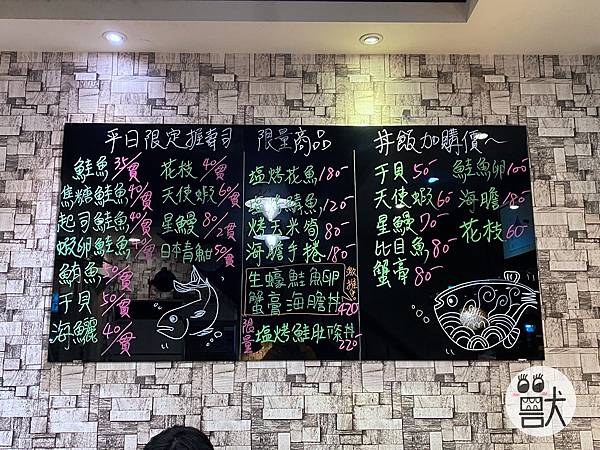 平日限定握壽司
鮭魚 35/貫
焦糖鮭魚 40/貫
起司鮭魚 40/貫
蝦卵鮭魚
鮪魚 50/貫
干貝 50/貫
海鱺 40/貫
花枝 40/貫
天使蝦 60/貫
星鰻 80/2貫
日本青魽 50/貫
限量商品
塩烤花魚 180-
魚 120-
烤玉米筍 80-
海膽手捲 180-
生蠔鮭魚卵
蟹膏海膽丼 420
限量 塩烤鮭肚條丼 220
丼飯加購價~
干貝 50-
天使蝦 60
星鰻 70-
比目魚 80-
蟹膏 80-
鮭魚卵 100-
海膽 180-
花枝 60-
獸犬